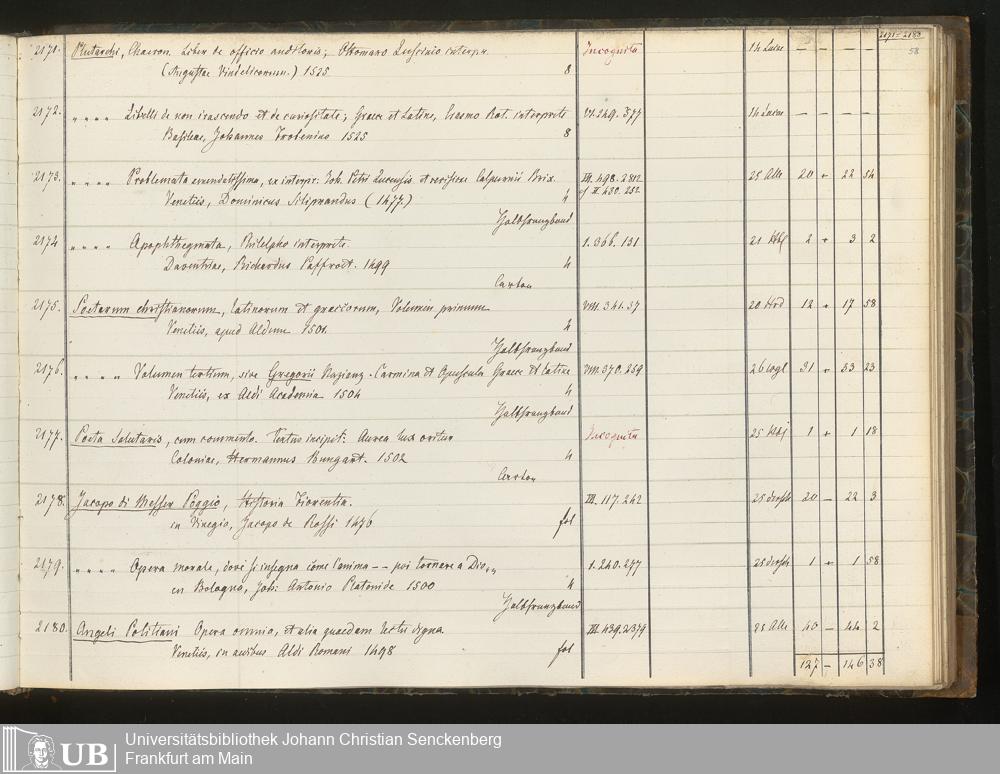 2171-2180
58
2171. Plutarchi, Chaeron. Liber de officio auditoris; Othomaro Luscinio interpr. Incognita 14 Luine — — — —
(Augustae Vindelicorum.) 1525 8
2172. " " " " Libelli de non irascendo et de curiositate; Graece et Latine, Erasmo Rot. interprete VI. 249. 577 14 Luine — — — —
Basileae, Johannes Frobenius 1525 8
2173. " " " " Problemata emendatissima, ex interpr. Joh. Petri Lucensis et revisione Calpurnii Brix. III. 498. 2812 25 Alle 20 + 22 54
Venetiis, Dominicus Siliprandus (1477.) 4 cf II. 430. 252.
Halbfranzband
2174 " " " " Apophthegmata, Philelpho interprete. 1. 366. 131 21 2 + 3 2
Daventriae, Richardus Paffroet. 1499 4
Carton
2175. Poetarum christianorum, latinorum et graecorum, Volumen primum VIII. 341. 37 20 Hrd 12 + 17 58
Venetiis, apud Aldum 1501. 4
Halbfranzband
2176. " " " " Volumen tertium, sive Gregorii Nazianz. Carmina et Opuscula Graece et Latine VIII. 370. 259 26 31 + 33 23
Venetiis, ex Aldi Academia 1504 4
Halbfranzband
2177. Poeta Salutaris, cum commento. Textus incipit: Aurea lux oritur Incognita 25 1 + 1 18
Coloniae, Hermannus Bungart. 1502 4
Carton
2178. Jacopo di Messer Poggio, Historia Fiorentin. III. 117. 242 25 20 — 22 3
in Vinegia, Jacopo de Rossi 1476 fol
2179. " " " " Opera morale, dove si insegna come l'anima -- poi tornare a Dio, 1. 240. 277 25 1 + 1 58
en Bologna, Joh: Antonio Platonide 1500 4
Halbfranzband
2180. Angeli Politiani Opera omnia, et alia quaedam lectu digna III. 439. 2379 25 Alle 40 — 44 2
Venetiis, in aedibus Aldi Romani 1498 fol
127 — 146 38
UB
Universitätsbibliothek Johann Christian Senckenberg
Frankfurt am Main